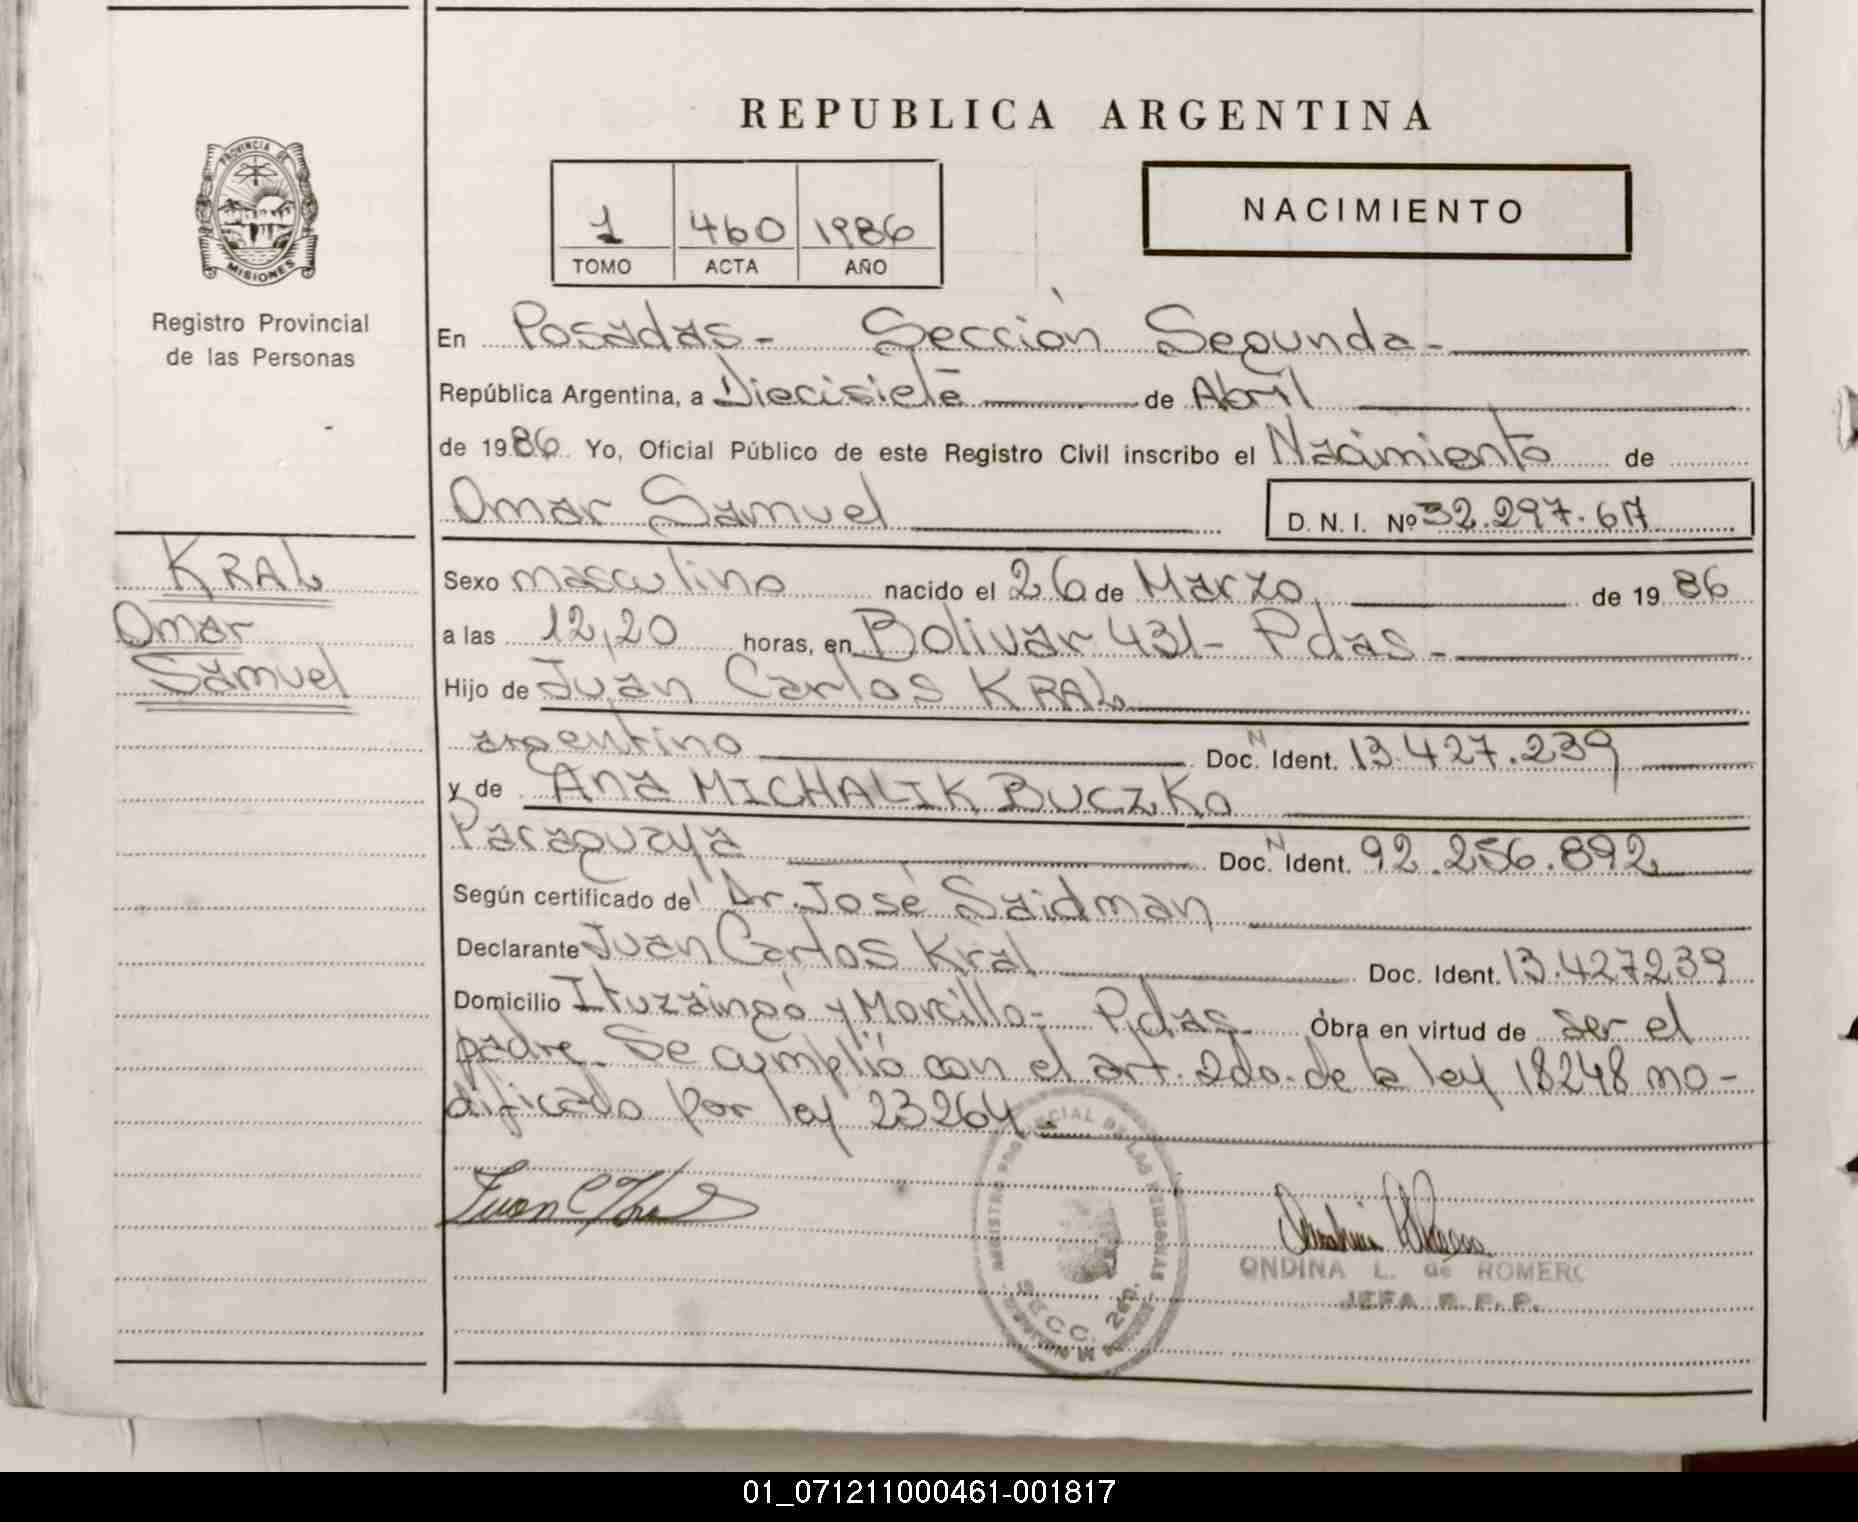 REPUBLICA ARGENTINA
PROVINCIA DE
MISIONES
Registro Provincial
de las Personas
1 460 1986
TOMO ACTA AÑO
NACIMIENTO
En Posadas - Sección Segunda -
República Argentina, a Diecisiete de Abril
de 1986 Yo, Oficial Público de este Registro Civil inscribo el Nacimiento de
Omar Samuel D. N. I. Nº 32.297.617
KRAL
Omar
Samuel
Sexo masculino nacido el 26 de Marzo, de 1986
a las 12,20 horas, en Bolivar 431 - Pdas -
Hijo de Juan Carlos KRAL
argentino Doc. N Ident. 13.427.239
y de Ana MICHALIK BUCZKo
Paraguaya Doc. N Ident. 92.256.892
Según certificado del Dr. José Saidman
Declarante Juan Carlos Kral Doc. Ident. 13.427239
Domicilio Ituzaingó y Morcillo - Pdas Obra en virtud de ser el
padre. Se cumplió con el art. 2do. de la ley 18248 mo-
dificado por ley 23264.-
Juan C Kral
ONDINA L. de ROMERO
JEFA R. P. P.
SECC. 2da.
01_071211000461-001817